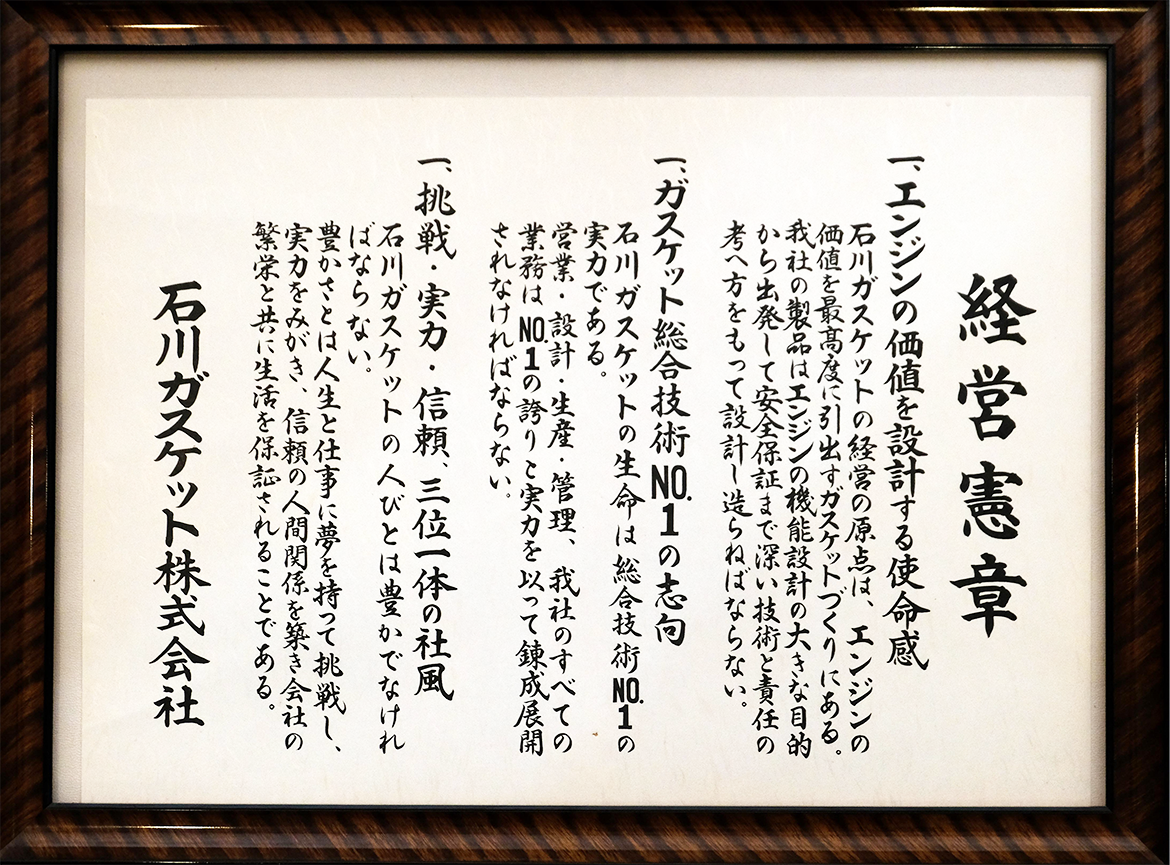 経営憲章
一、エンジンの価値を設計する使命感
石川ガスケットの経営の原点は、エンジンの
価値を最高度に引出すガスケットづくりにある。
我社の製品はエンジンの機能設計の大きな目的
から出発して安全保証まで深い技術と責任の
考へ方をもって設計し造らねばならない。
一、ガスケット総合技術NO.1の志向
石川ガスケットの生命は総合技術NO.1の
実力である。
営業・設計・生産・管理、我社のすべての
業務はNO.1の誇りと実力を以って錬成展開
されなければならない。
一、挑戦・実力・信頼、三位一体の社風
石川ガスケットの人びとは豊かでなけれ
ばならない。
豊かさとは人生と仕事に夢を持って挑戦し、
実力をみがき、信頼の人間関係を築き会社の
繁栄と共に生活を保証されることである。
石川ガスケット株式会社